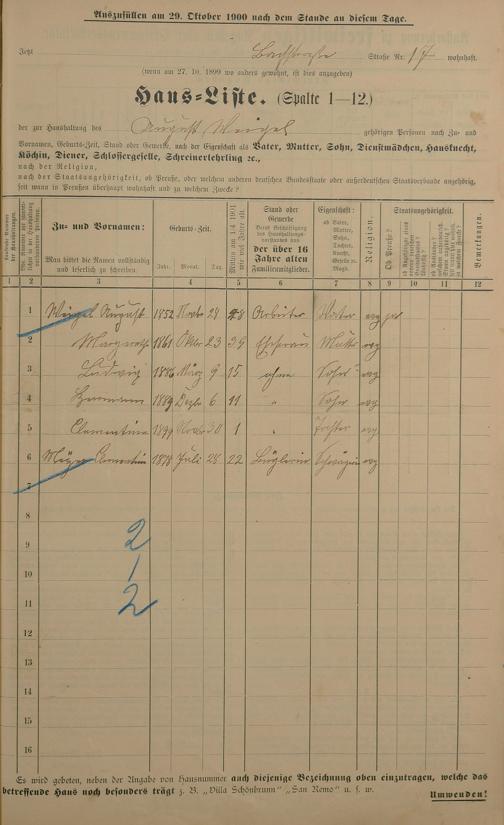 Auszufüllen am 29. Oktober 1900 nach dem Stande an diesem Tage.
Jetzt Bachstraße Straße Nr. 17 wohnhaft.
(wenn am 27. 10. 1899 wo anders gewohnt, ist dies anzugeben)
Haus-Liste. (Spalte 1—12.)
der zur Haushaltung des August Weigel gehörigen Personen nach Zu- und
Vornamen, Geburts-Zeit, Stand oder Gewerbe, nach der Eigenschaft als Vater, Mutter, Sohn, Dienstmädchen, Hausknecht,
Köchin, Diener, Schlossergeselle, Schreinerlehrling 2c.,
nach der Religion,
nach der Staatsangehörigkeit, ob Preuße, oder welchem anderen deutschen Bundesstaate oder außerdeutschen Staatsverbande angehörig,
seit wann in Preußen überhaupt wohnhaft und zu welchem Zwecke?
Zu- und Vornamen:
Man bittet die Namen vollständig und leserlich zu schreiben.
Geburts-Zeit.
Jahr. Monat. Tag.
Mithin am 1/4 1901 wie viel Jahre alt.
Stand oder Gewerbe
der über 16 Jahre alten Familienmitglieder.
Eigenschaft:
ob Vater, Mutter, Sohn, Tochter, Knecht, Geselle od. Magd.
Religion
Staatsangehörigkeit.
Ob Preuße?
Bemerkungen.
1 2 3 4 5 6 7 8 9 10 11 12
1 Weigel August 1852 Novbr 28 48 Arbeiter Vater evg ja
2 Margareth 1861 Oktbr 23 39 Ehefrau Mutter evg
3 Ludwig 1886 März 9 15 ohne Sohn evg
4 Hermann 1889 Dezbr 6 11 " Sohn evg
5 Clementine 1899 Novbr 30 1 " Tochter evg
6 Clementine 1878 Juli 28 22 Büglerin Schwägerin evg
7
8
9
10
11
12
13
14
15
16
2
/
2
Es wird gebeten, neben der Angabe von Hausnummer auch diejenige Bezeichnung oben einzutragen, welche das
betreffende Haus noch besonders trägt z. B. „Villa Schönbrunn" „San Remo" u. s. w.
Umwenden!